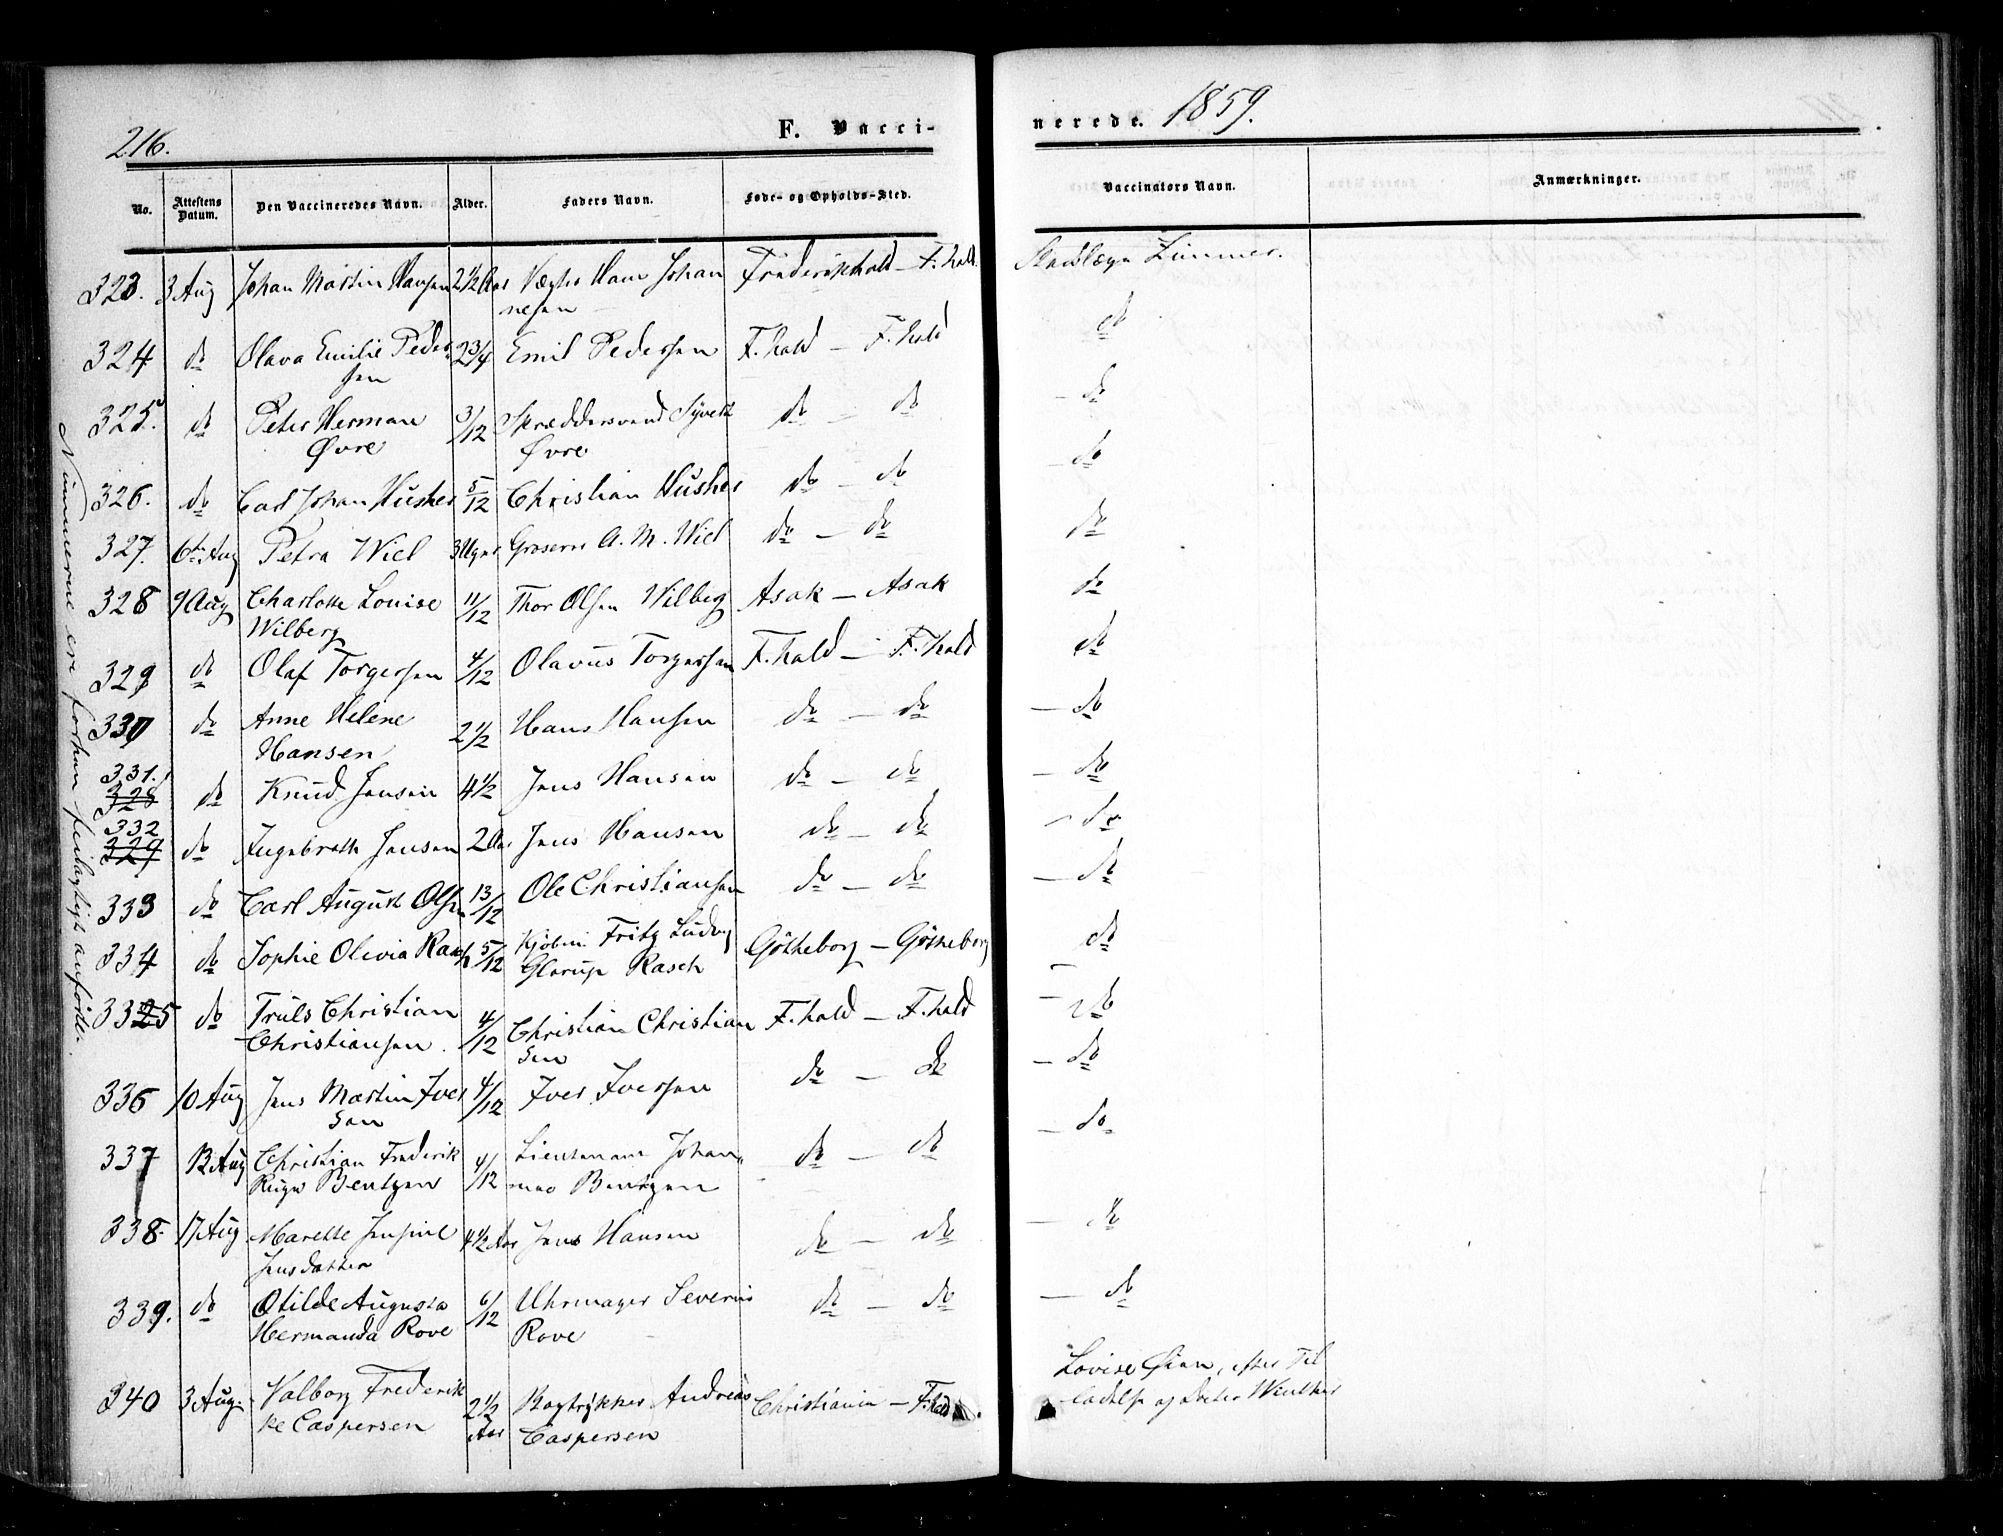 216.
F. Vacci-
nerede. 1859.
No. Attestens Datum. Den Vaccineredes Navn. Alder. Faders Navn. Føde- og Opholds-Sted. Vaccinators Navn. Anmærkninger.
323. 3 Aug Johan Martin Hansen 2½ Aar Vægter Hans Johan Frederikshald - F.hald. Stadslæge Zimmer.
nesen
324 do Olava Emilie Peder 2¾ Emil Pedersen F.hald - F.hald do
sen
325. do Peter Herman 3/12 Skræddersvend Syvert do - do - do
Øvre Øvre
326. do Carl Johan Husher 5/12 Christian Husher do - do - do
327. 6te Aug Petra Wiel 3 Uger Grosserer A. M. Wiel do - do do
328 9 Aug Charlotte Louise 11/12 Thor Olsen Wilberg Asak - Asak do
Wilberg
329 do Olaf Torgersen 4/12 Olavus Torgersen F.hald - F.hald do
330 do Anne Helene 2½ Hans Hansen do - do - do
Hansen
331.
328 do Knud Jensen 4½ Jens Hansen do - do - do
332
329 do Ingebreth Jensen 2 Aar Jens Hansen do - do - do
333 do Carl August Olsen 13/12 Ole Christiansen do - do - do
334 do Sophie Olivia Rasch 5/12 Kjøbm. Fritz Ludvig Götheborg - Götheborg do
Glarup Rasch
3325 do Truls Christian 4/12 Christian Christian F.hald - F.hald - do
Christiansen. sen
336 10 Aug Jens Martin Iver 4/12 Iver Iversen do - do - do
sen
337 12 Aug Christian Frederik 4/12 Lieutenant Johan do - do - do
Bentzen Bentzen
338. 17 Aug Marethe Jensine 4½ Aar Jens Hansen do - do - do
Jensdatter
339. do Otilde Augusta 6/12 Uhrmager Severin do - do - do
Hermanda Rove Rove
340 3 Aug. Valborg Frederik 2½ Bogtrykker Andreas Christiania - F.hald. Lovise Gian, efter Til
ke Caspersen Aar Caspersen ladelse af Doctor Winther
Numerene ere forhen feilagtigt anførte.